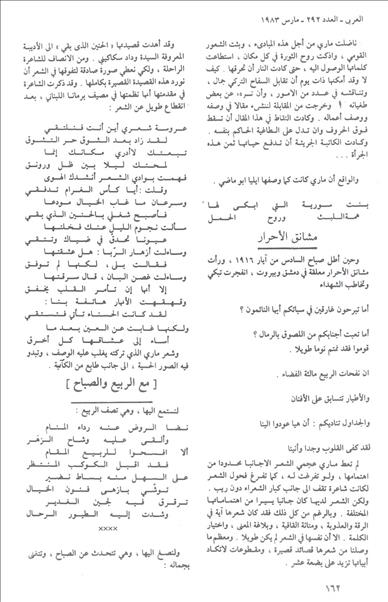 العربي - العدد ٢٩٢ - مارس ١٩٨٣
ناضلت ماري من أجل هذه المبادىء، وبث الشعور
القومي، واذكاء روح الثورة في كل مكان، استطاعت
كلماتها الوصول اليه، حتى كادت النار أن تحرقها. كيف
لا وقد أمكنها ذات يوم أن تقابل السفاح التركي جمال،
وتناقشه في عدد من الأمور، وأن تسرد عن بعض
طغيانه! وخرجت من المقابلة لتنشىء مقالا في وصفه
ووصف أعماله. وكادت النقاط في هذا المقال أن تسقط
فوق الحروف وان تدل على الطاغية الحاكم بنفسه.
وكادت الكاتبة الجريئة أن تدفع حياتها ثمن هذه
الجرأة ...
والواقع أن ماري كانت كما وصفها ايليا ابو ماضي.
بنت سورية التي ابكى لها
همة الليث وروح الحمل
مشانق الأحرار
وحين أطل صباح السادس من أيار ١٩١٦، ورأت
مشانق الأحرار معلقة في دمشق وبيروت، انفجرت تبكي
وتخاطب الشهداء
أما تبرحون غارقين في سباتكم أيها النائمون؟
أما تعبت أجنابكم من اللصوق بالرمال؟
قوموا فقد نمتم نوما طويلا.
ان نفحات الربيع مالئة الفضاء.
والأطيار تتسابق على الأفنان
والجداول تناديكم: أن هيا عودوا الينا
لقد كفى القلوب وجدا وأنينا
لم تعط ماري عجمي الشعر الا جانبا محدودا من
اهتمامها، ولو تفرغت له، كما تفرغ فحول الشعر
لكانت شاعرة تقف الى جانب كبار الشعراء دون ريب.
ولكن الشعر لديها كان جانبا يسيرا من اهتماماتها
المختلفة. وبالرغم من كل ذلك فقد كان شعرها آية في
الرقة والعذوبة، ومتانة القافية، وبلاغة المعنى، واختيار
الكلمة. الا أن نفسها في الشعر لم يكن طويلا. ومعظم ما
وصلنا من شعرها قصائد قصيرة، ومقطوعات لا تكاد
أبياتها تزيد على بضعة عشر.
وقد أهدت قصيدتها (الحنين الذي بقي) الى الأديبة
المعروفة السيدة وداد سكاكيني. ومن الانصاف للشاعرة
الراحلة، ولكي نعطي صورة صادقة لتفوقها في الشعر أن
نورد هذه القصيدة القصيرة بكاملها. وقد ذكرت الشاعرة
في مقدمتها أنها نظمتها في مصيف برمانا اللبناني، بعد
انقطاع طويل عن الشعر:
عروسة شعري أين أنت فنلتقي
لقد زاد بعد الشوق حر التشوق
تبعتك لا أدري مكانك إنما
لمحتك ليلا بين ظل ورونق
فهمت بوادي الشعر أنشدك الهوى
وقلت: أيا كأس الغرام تدفقي
وسرعان ما غاب الخيال مودعا
فأصبح شغلي بالحنين الذي بقي
سألت نجوم الليل عنك فخلتها
عيونا تحدق في ضياك وتتقي
وساءلت أزهار الربا: هل عشقتها
فقالت بلى، لكنها لم توفق
وساءلت غصن البان، قال سرقتها
إلا أنها إن تأمر القلب يخفق
وقهقهت الأنهار هاتفة بنا:
لقد كانت الحسناء تأتي فتستقي
ولكنها غابت عن العين بعد ما
أساء إلى عشاقها كل أخرق
وشعر ماري الذي تركته يغلب عليه الوصف، وتبدو
فيه الصور الحسية، الى جانب طابع من الكآبة.
[ مع الربيع والصباح ]
لنستمع اليها، وهي تصف الربيع:
نضا الروض عنه رداء المنام
وألقى عليه وشاح الزهر
ألا افسحوا للربيع المقام
فقد اقبل الكوكب المنتظر
على السهل منه بساط نضير
توشى بأزهى فنون الخيال
ترقرق فيه لجين الغدير
وشدت إليه الطيور الرحال
××××
ولنصغ اليها، وهي تتحدث عن الصباح، وتتغنى
بجماله:
١٦٢